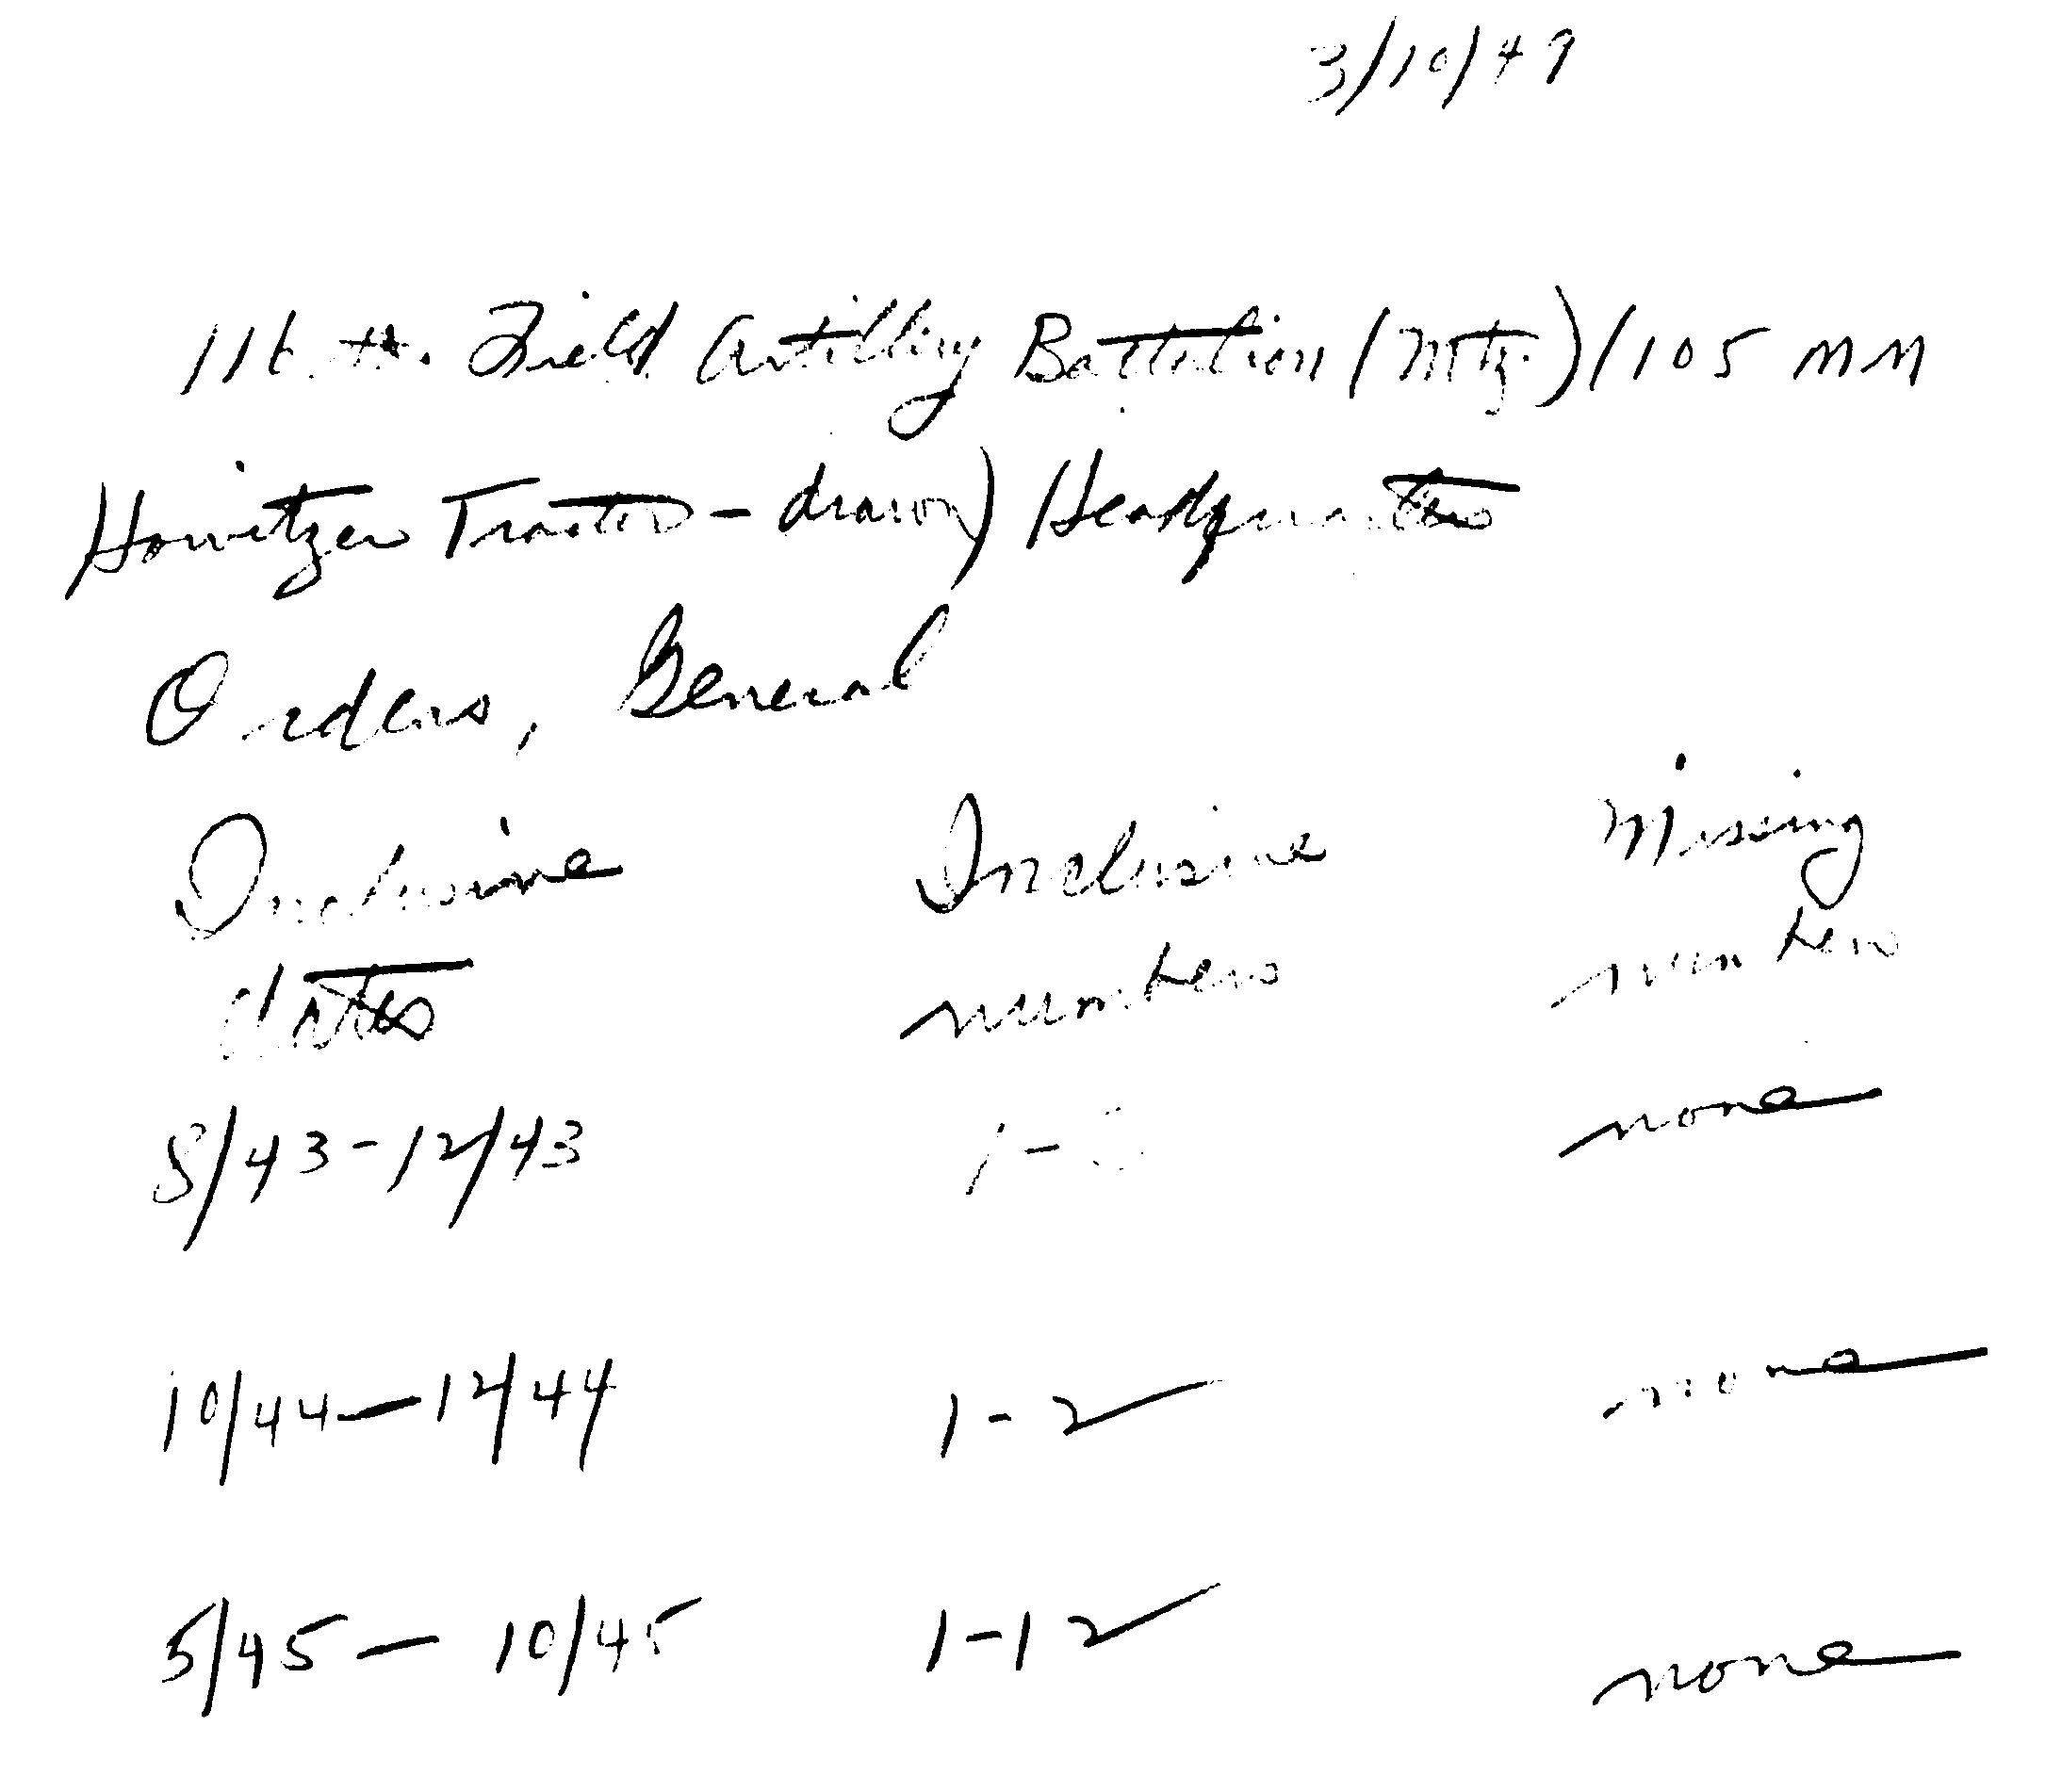 3/10/49
116 th. Field Artillery Battalion (Mtz.) (105 MM
Howitzer Tractor-drawn) Headquarters
Orders, General
Inclusive Inclusive Missing
dates numbers numbers
8/43-12/43 1- none
10/44-12/44 1-2 none
5/45-10/45 1-12 none